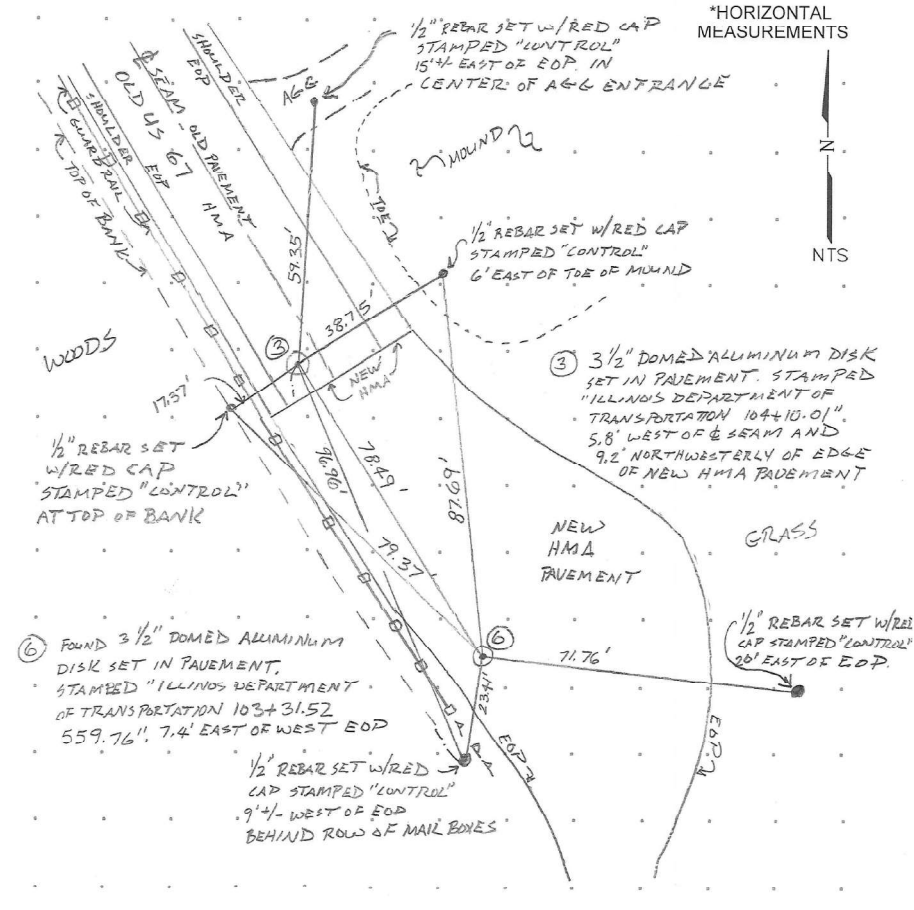 *HORIZONTAL
MEASUREMENTS
N
NTS
1/2" REBAR SET W/RED CAP
STAMPED "CONTROL"
15'+/- EAST OF EOP. IN
CENTER OF AGG ENTRANCE
SHOULDER
EOP
℄ SEAM - OLD PAVEMENT
HMA
OLD US 67
SHOULDER
EOP
GUARDRAIL
TOP OF BANK
AGG
MOUND
TOE
59.35'
1/2" REBAR SET W/RED CAP
STAMPED "CONTROL"
6' EAST OF TOE OF MOUND
38.75'
WOODS
3
NEW
HMA
17.37'
3 3 1/2" DOMED ALUMINUM DISK
SET IN PAVEMENT. STAMPED
"ILLINOIS DEPARTMENT OF
TRANSPORTATION 104+10.01"
5.8' WEST OF ℄ SEAM AND
9.2' NORTHWESTERLY OF EDGE
OF NEW HMA PAVEMENT
1/2" REBAR SET
W/RED CAP
STAMPED "CONTROL"
AT TOP OF BANK
96.96'
78.49'
87.69'
79.37'
NEW
HMA
PAVEMENT
GRASS
6 FOUND 3 1/2" DOMED ALUMINUM
DISK SET IN PAVEMENT,
STAMPED "ILLINOS DEPARTMENT
OF TRANSPORTATION 103+31.52
559.76". 7.4' EAST OF WEST EOP
6
71.76'
1/2" REBAR SET W/RED
CAP STAMPED "CONTROL"
20' EAST OF EOP.
23.41'
EOP
EOP
1/2" REBAR SET W/RED
CAP STAMPED "CONTROL"
9'+/- WEST OF EOP
BEHIND ROW OF MAIL BOXES